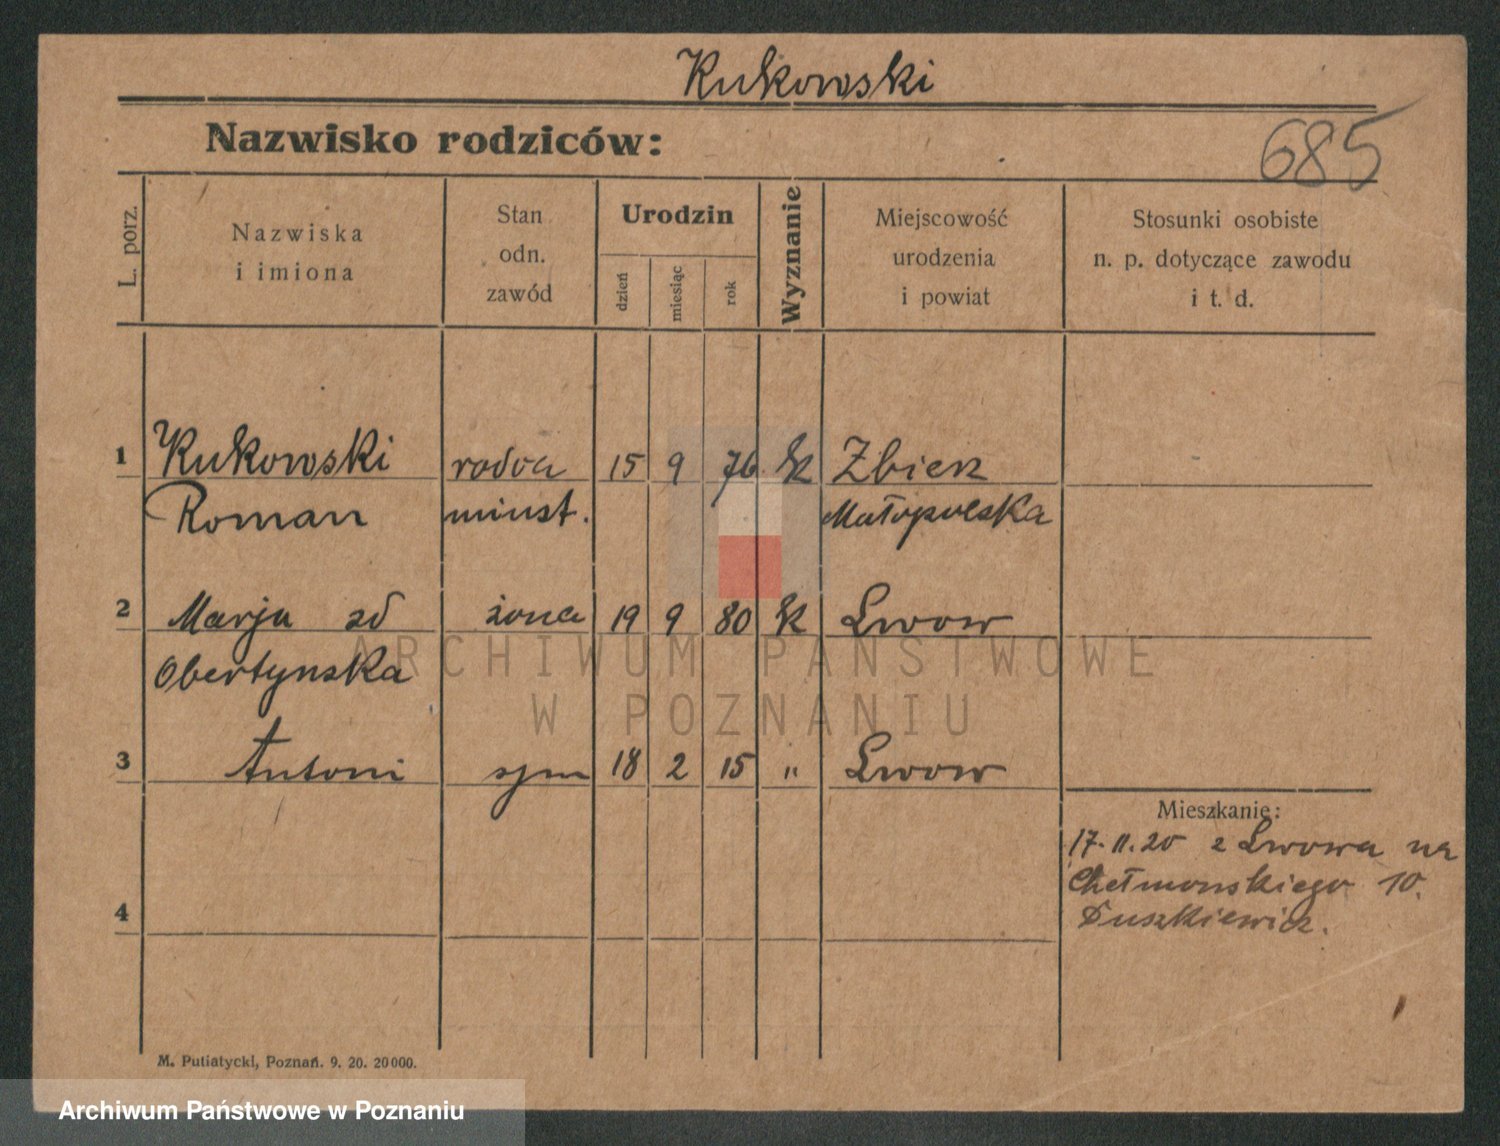 Kukowski
Nazwisko rodziców:
685
L. porz.
Nazwiska
i imiona
Stan
odn.
zawód
Urodzin
dzień
miesiąc
rok
Wyznanie
Miejscowość
urodzenia
i powiat
Stosunki osobiste
n. p. dotyczące zawodu
i t. d.
1 Kukowski radca 15 9 76 k
Roman minist. Małopolska
2 Marja zd żona 19 9 80 k Lwow
Obertynska
3 Antoni syn 18 2 15 " Lwow
Mieszkanie:
17.11.20 z Lwowa na
Chełmonskiego 10.
4
M. Putiatycki, Poznań. 9. 20. 20000.
ARCHIWUM PAŃSTWOWE
W POZNANIU
Archiwum Państwowe w Poznaniu